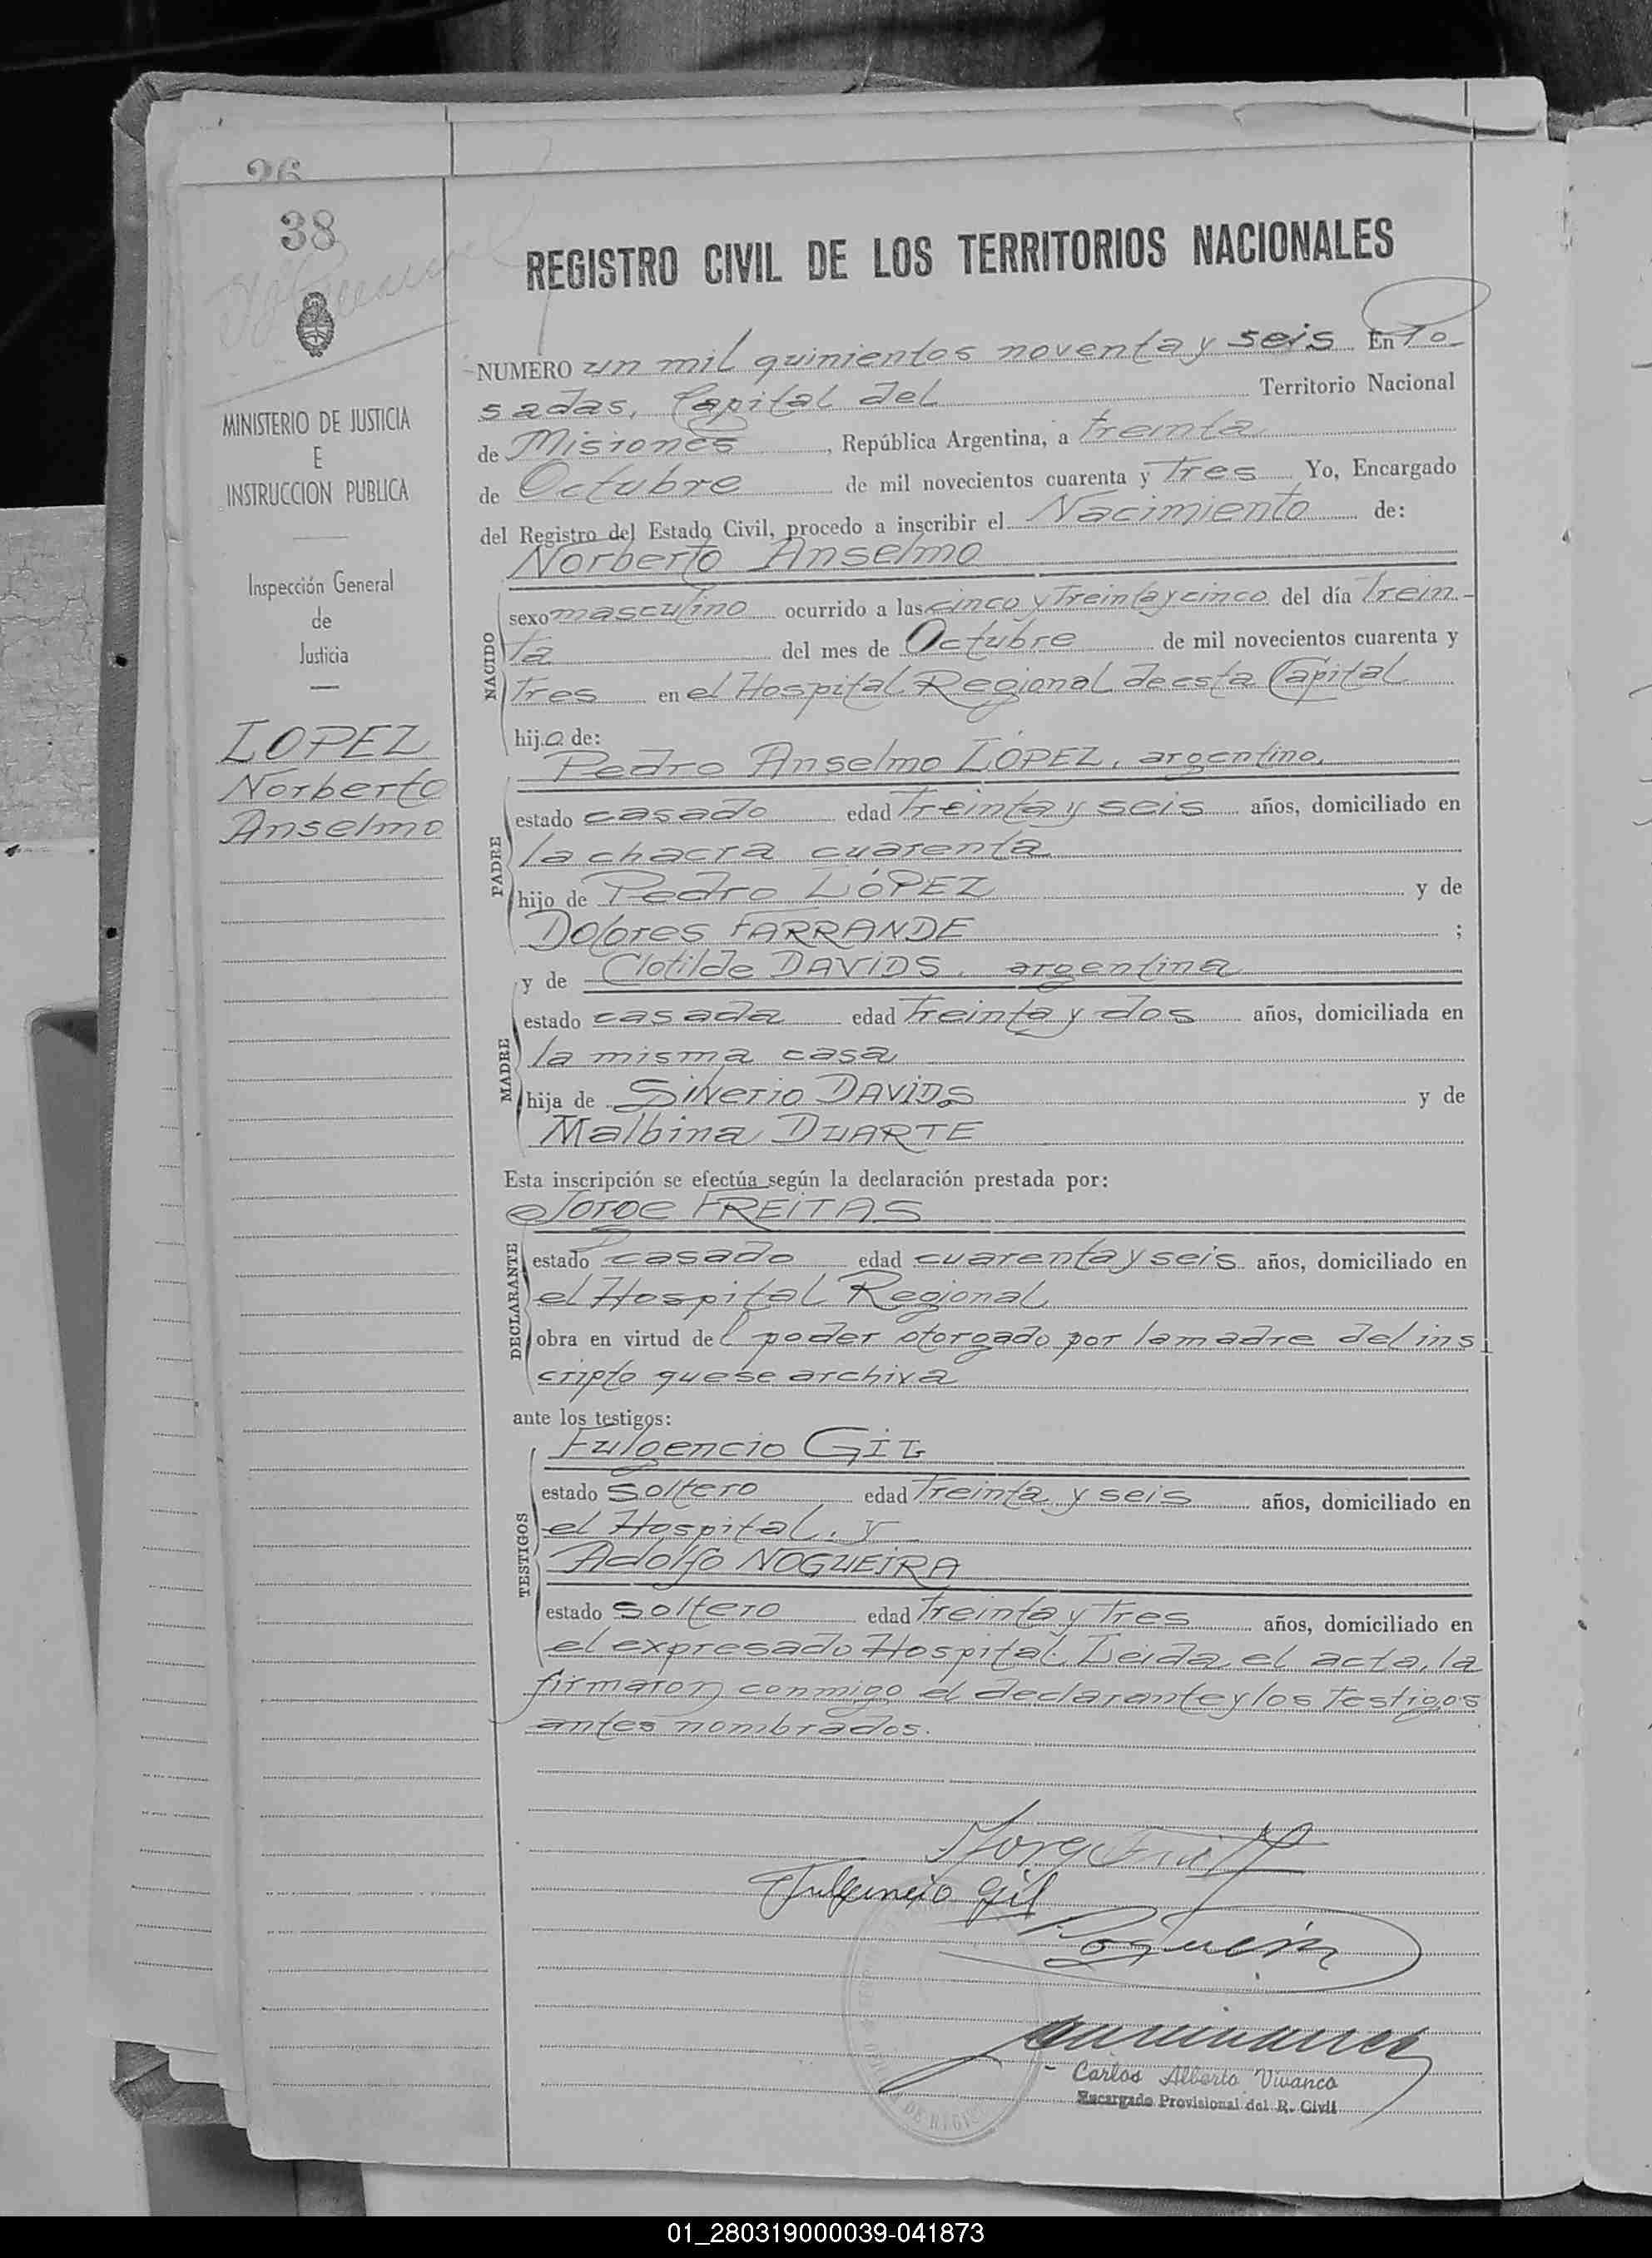 26
38
REGISTRO CIVIL DE LOS TERRITORIOS NACIONALES
NUMERO un mil quinientos noventa y seis En Po-
sadas, Capital del Territorio Nacional
de Misiones, República Argentina, a treinta
de Octubre de mil novecientos cuarenta y Tres Yo, Encargado
del Registro del Estado Civil, procedo a inscribir el Nacimiento de:
Norberto Anselmo
MINISTERIO DE JUSTICIA
E
INSTRUCCION PUBLICA
Inspección General
de
Justicia
LOPEZ
Norberto
Anselmo
NACIDO
sexo masculino ocurrido a las cinco y Treinta y cinco del día Trein-
ta del mes de Octubre de mil novecientos cuarenta y
Tres en el Hospital Regional de esta Capital
hijo de:
Pedro Anselmo LÓPEZ, argentino,
PADRE
estado casado edad Treinta y seis años, domiciliado en
la chacra cuarenta
hijo de Pedro LÓPEZ y de
Dolores FARRANDE ;
y de Clotilde DAVIDS, argentina
MADRE
estado casada edad Treinta y dos años, domiciliada en
la misma casa
hija de Silverio DAVIDS y de
Malbina DUARTE
Esta inscripción se efectúa según la declaración prestada por:
Jorge FREITAS
DECLARANTE
estado casado edad cuarenta y seis años, domiciliado en
el Hospital Regional
obra en virtud del poder otorgado por la madre del ins
cripto que se archiva
ante los testigos:
Fulgencio GIL
TESTIGOS
estado soltero edad Treinta y seis años, domiciliado en
el Hospital, y
Adolfo NOGUEIRA
estado soltero edad Treinta y Tres años, domiciliado en
el expresado Hospital. Leida el acta, la
firmaron conmigo el declarante y los Testigos
antes nombrados.
Fulgencio Gil
Carlos Alberto Vivanco
Encargado Provisional del R. Civil
01_280319000039-041873